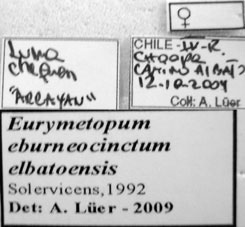 ♀
Luma
chequen
"ARRAYAN"
CHILE - IV - R.
Choapa
12-10-2004
Coll: A. Lüer
Eurymetopum
eburneocinctum
elbatoensis
Solervicens, 1992
Det: A. Lüer - 2009